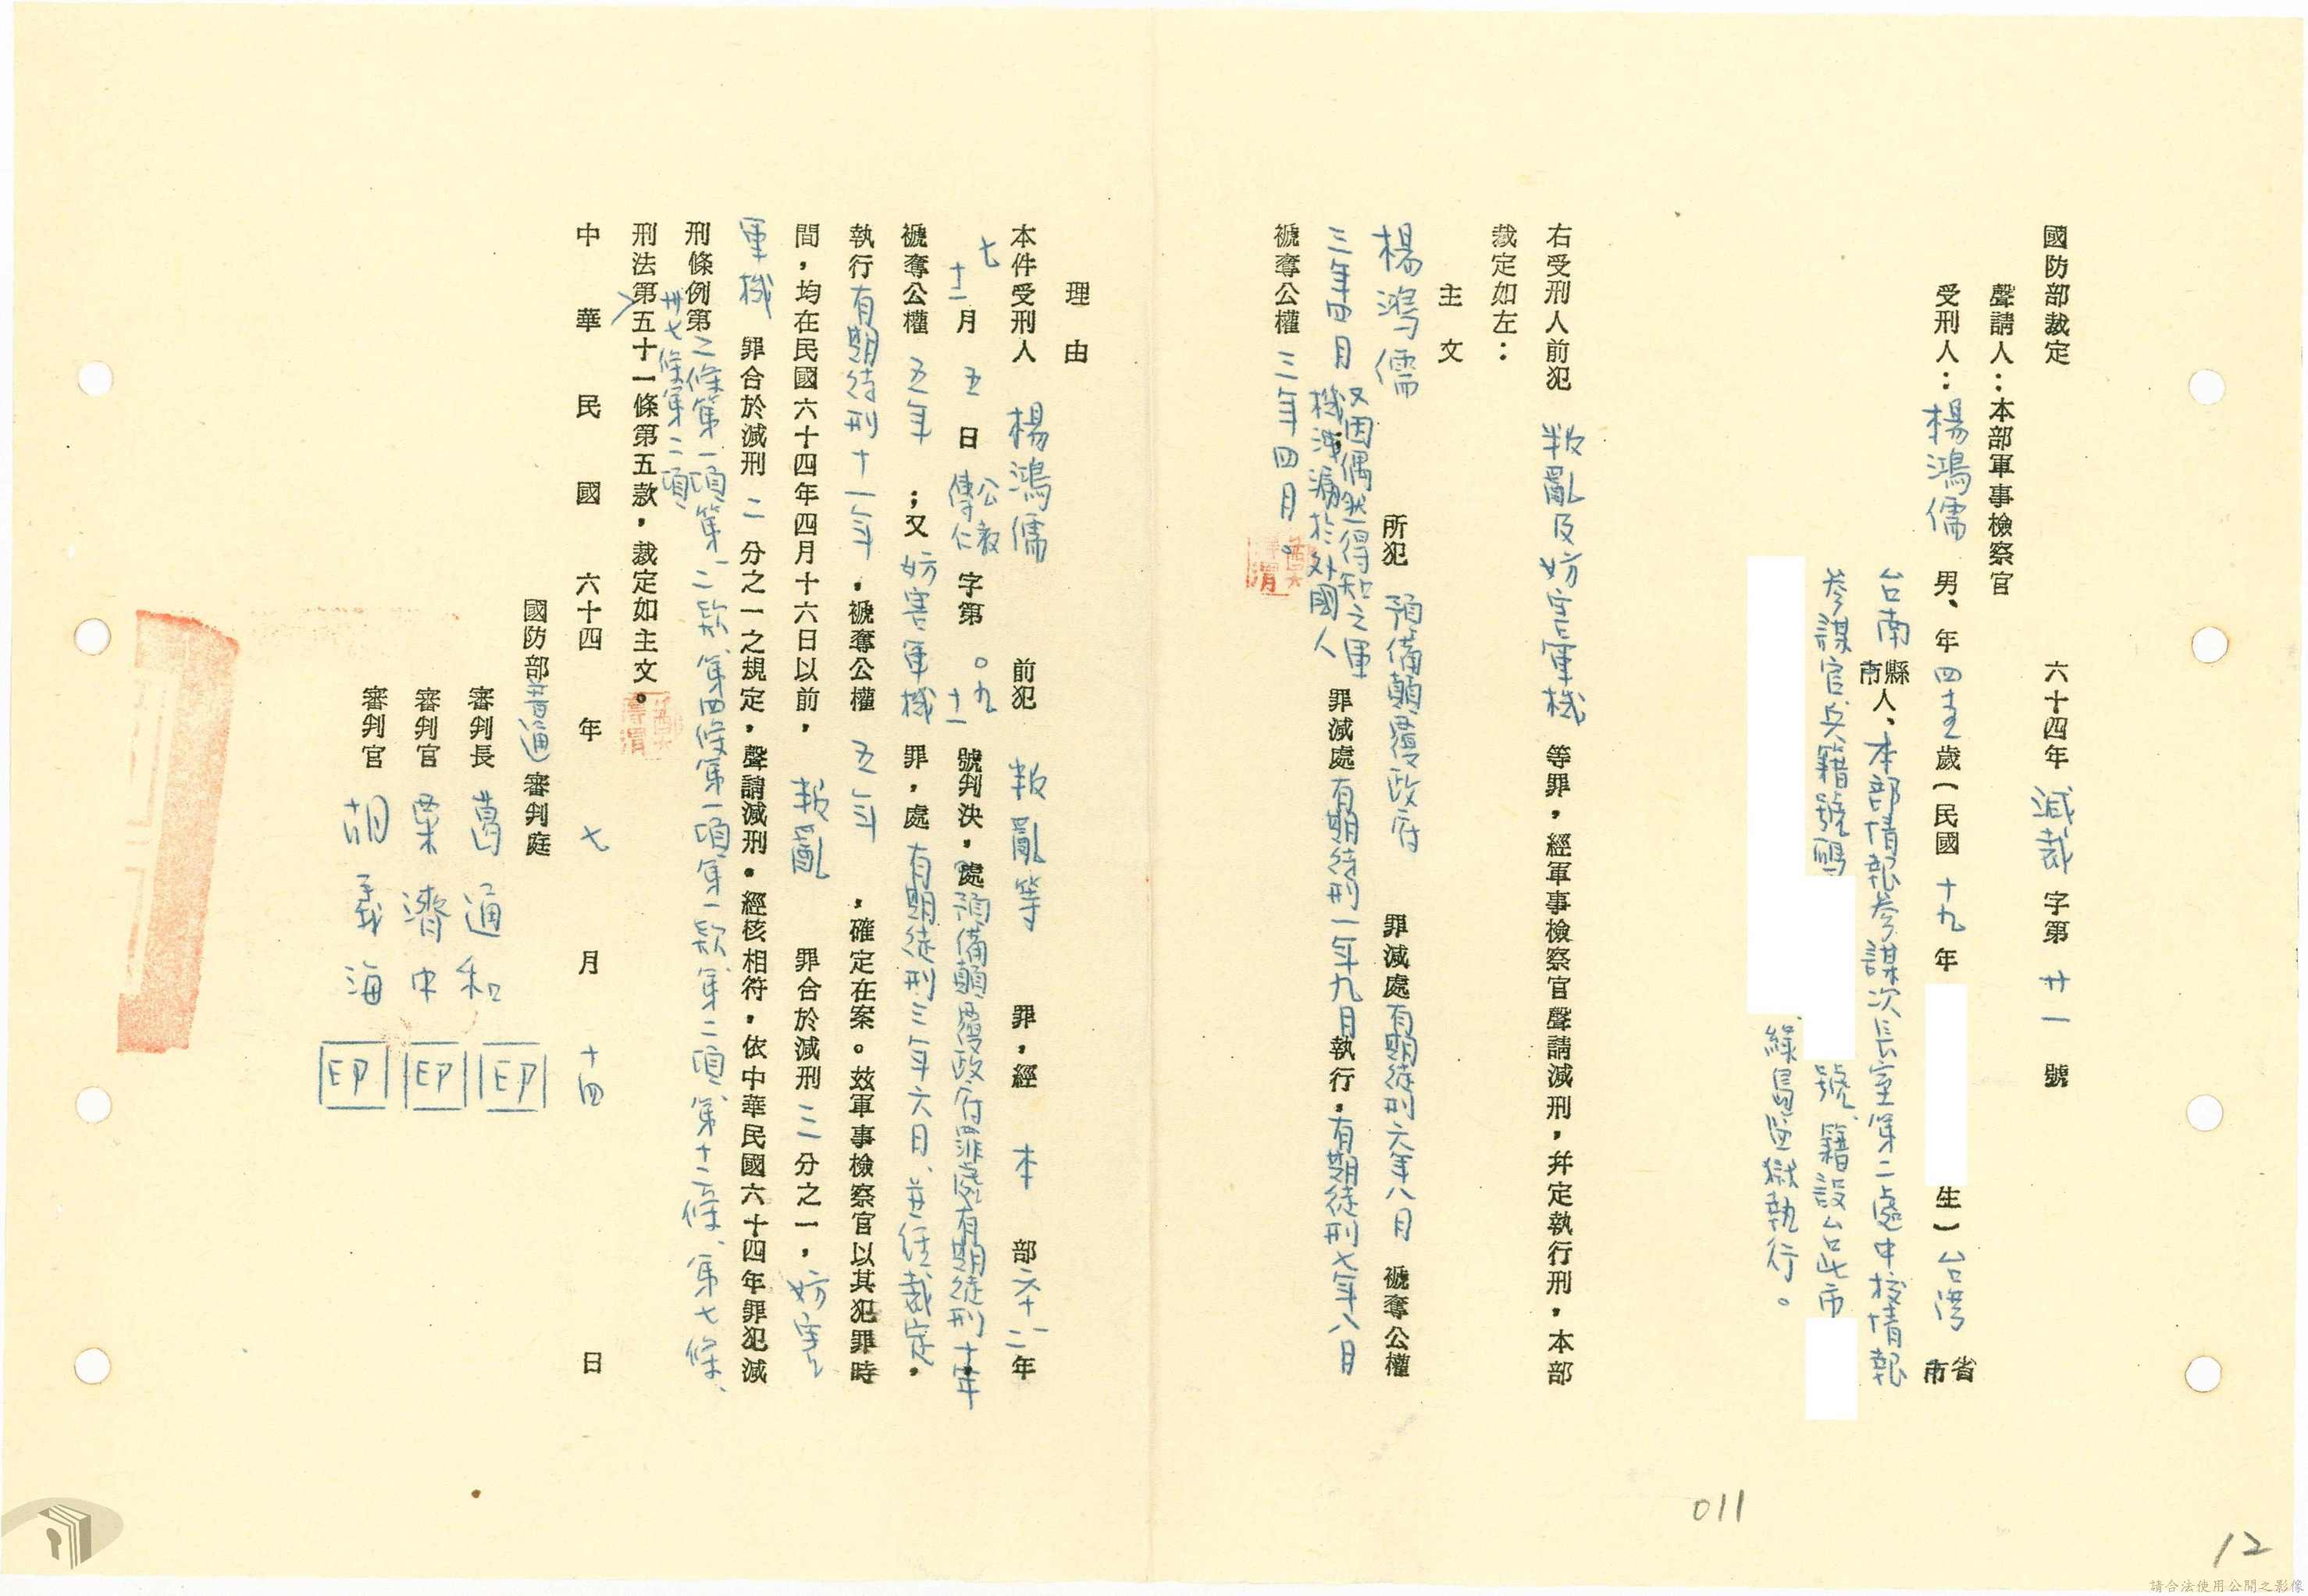 國防部裁定　六十四年減裁字第廿一號
聲請人：本部軍事檢察官
受刑人：楊鴻儒　男、年四十五歲（民國十九年　生）台灣省市
台南縣市人、本部情報參謀次長室第二處中校情報
參謀官兵籍號碼　號、籍設台北市
綠島監獄執行。
右受刑人前犯叛亂及妨害軍機等罪，經軍事檢察官聲請減刑，幷定執行刑，本部
裁定如左：
主文
楊鴻儒所犯預備顛覆政府罪減處有期徒刑六年八月褫奪公權
三年四月；又因偶然得知之軍機洩漏於外國人罪減處有期徒刑一年九月執行，有期徒刑七年八月
褫奪公權三年四月。
理由
本件受刑人楊鴻儒前犯叛亂等罪，經本部六十二年
七　十二月五日公教傳仁字第〇九　十二號判決，處預備顛覆政府罪處有期徒刑十年，
褫奪公權五年；又妨害軍機罪，處有期徒刑三年六月、並經裁定，
執行有期徒刑十一年，褫奪公權五年，確定在案。玆軍事檢察官以其犯罪時
間，均在民國六十四年四月十六日以前，叛亂罪合於減刑三分之一，妨害
軍機罪合於減刑二分之一之規定，聲請減刑。經核相符，依中華民國六十四年罪犯減
刑條例第二條第一項第二款、第四條第一項第一款、第二項、第十二條、第七條、
刑法第卅七條第二項、五十一條第五款，裁定如主文。
中華民國六十四年七月十四日
國防部普通審判庭
審判長　葛通和　印
審判官　粟濟中　印
審判官　胡義海　印
011
12
請合法使用公開之影像